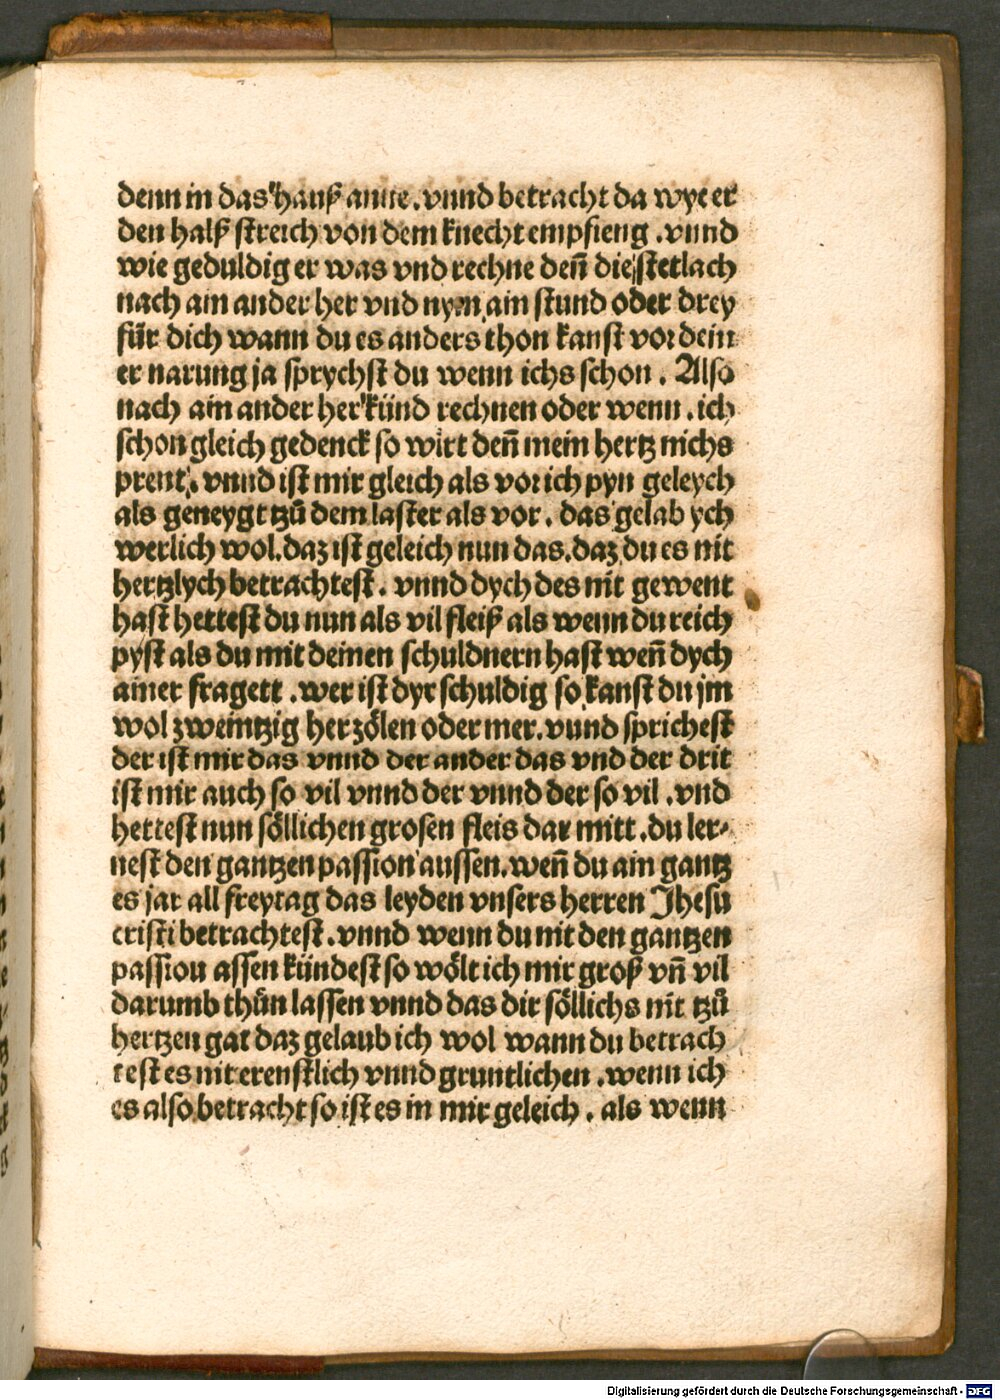 denn in das hauß anne. vnnd betracht da wye er
den halß streich von dem knecht empfieng. vnnd
wie geduldig er was vnd rechne deñ die stetlach
nach ain ander her vnd nym ain stund oder drey
für dich wann du es anders thon kanst vor dein
er narung ja sprychst du wenn ichs schon. Also
nach ain ander her künd rechnen oder wenn. ich
schon gleich gedenck so wirt deñ mein hertz nichs
prent. vnnd ist mir gleich als vor ich pyn geleych
als geneygt tzů dem laster als vor. das gelab ych
werlich wol. daz ist geleich nun das. daz du es nit
hertzlych betrachtest. vnnd dych des nit gewent
hast hettest du nun als vil fleiß als wenn du reich
pyst als du mit deinen schuldnern hast weñ dych
ainer fragett. wer ist dyr schuldig so kanst du jm
wol zweintzig her zölen oder mer. vnnd sprichest
der ist mir das vnnd der ander das vnd der drit
ist mir auch so vil vnnd der vnnd der so vil. vnd
hettest nun söllichen grosen fleis dar mitt. du ler⸗
nest den gantzen passion aussen. weñ du ain gantz
es jar all freytag das leyden vnsers herren Jhesu
cristi betrachtest. vnnd wenn du nit den gantzen
passiou assen kündest so wölt ich mir groß vñ vil
darumb thůn lassen vnnd das dir söllichs nit tzů
hertzen gat daz gelaub ich wol wann du betrach
test es nit erenstlich vnnd gruntlichen. wenn ich
es also betracht so ist es in mir geleich. als wenn
Digitalisierung gefördert durch die Deutsche Forschungsgemeinschaft - DFG